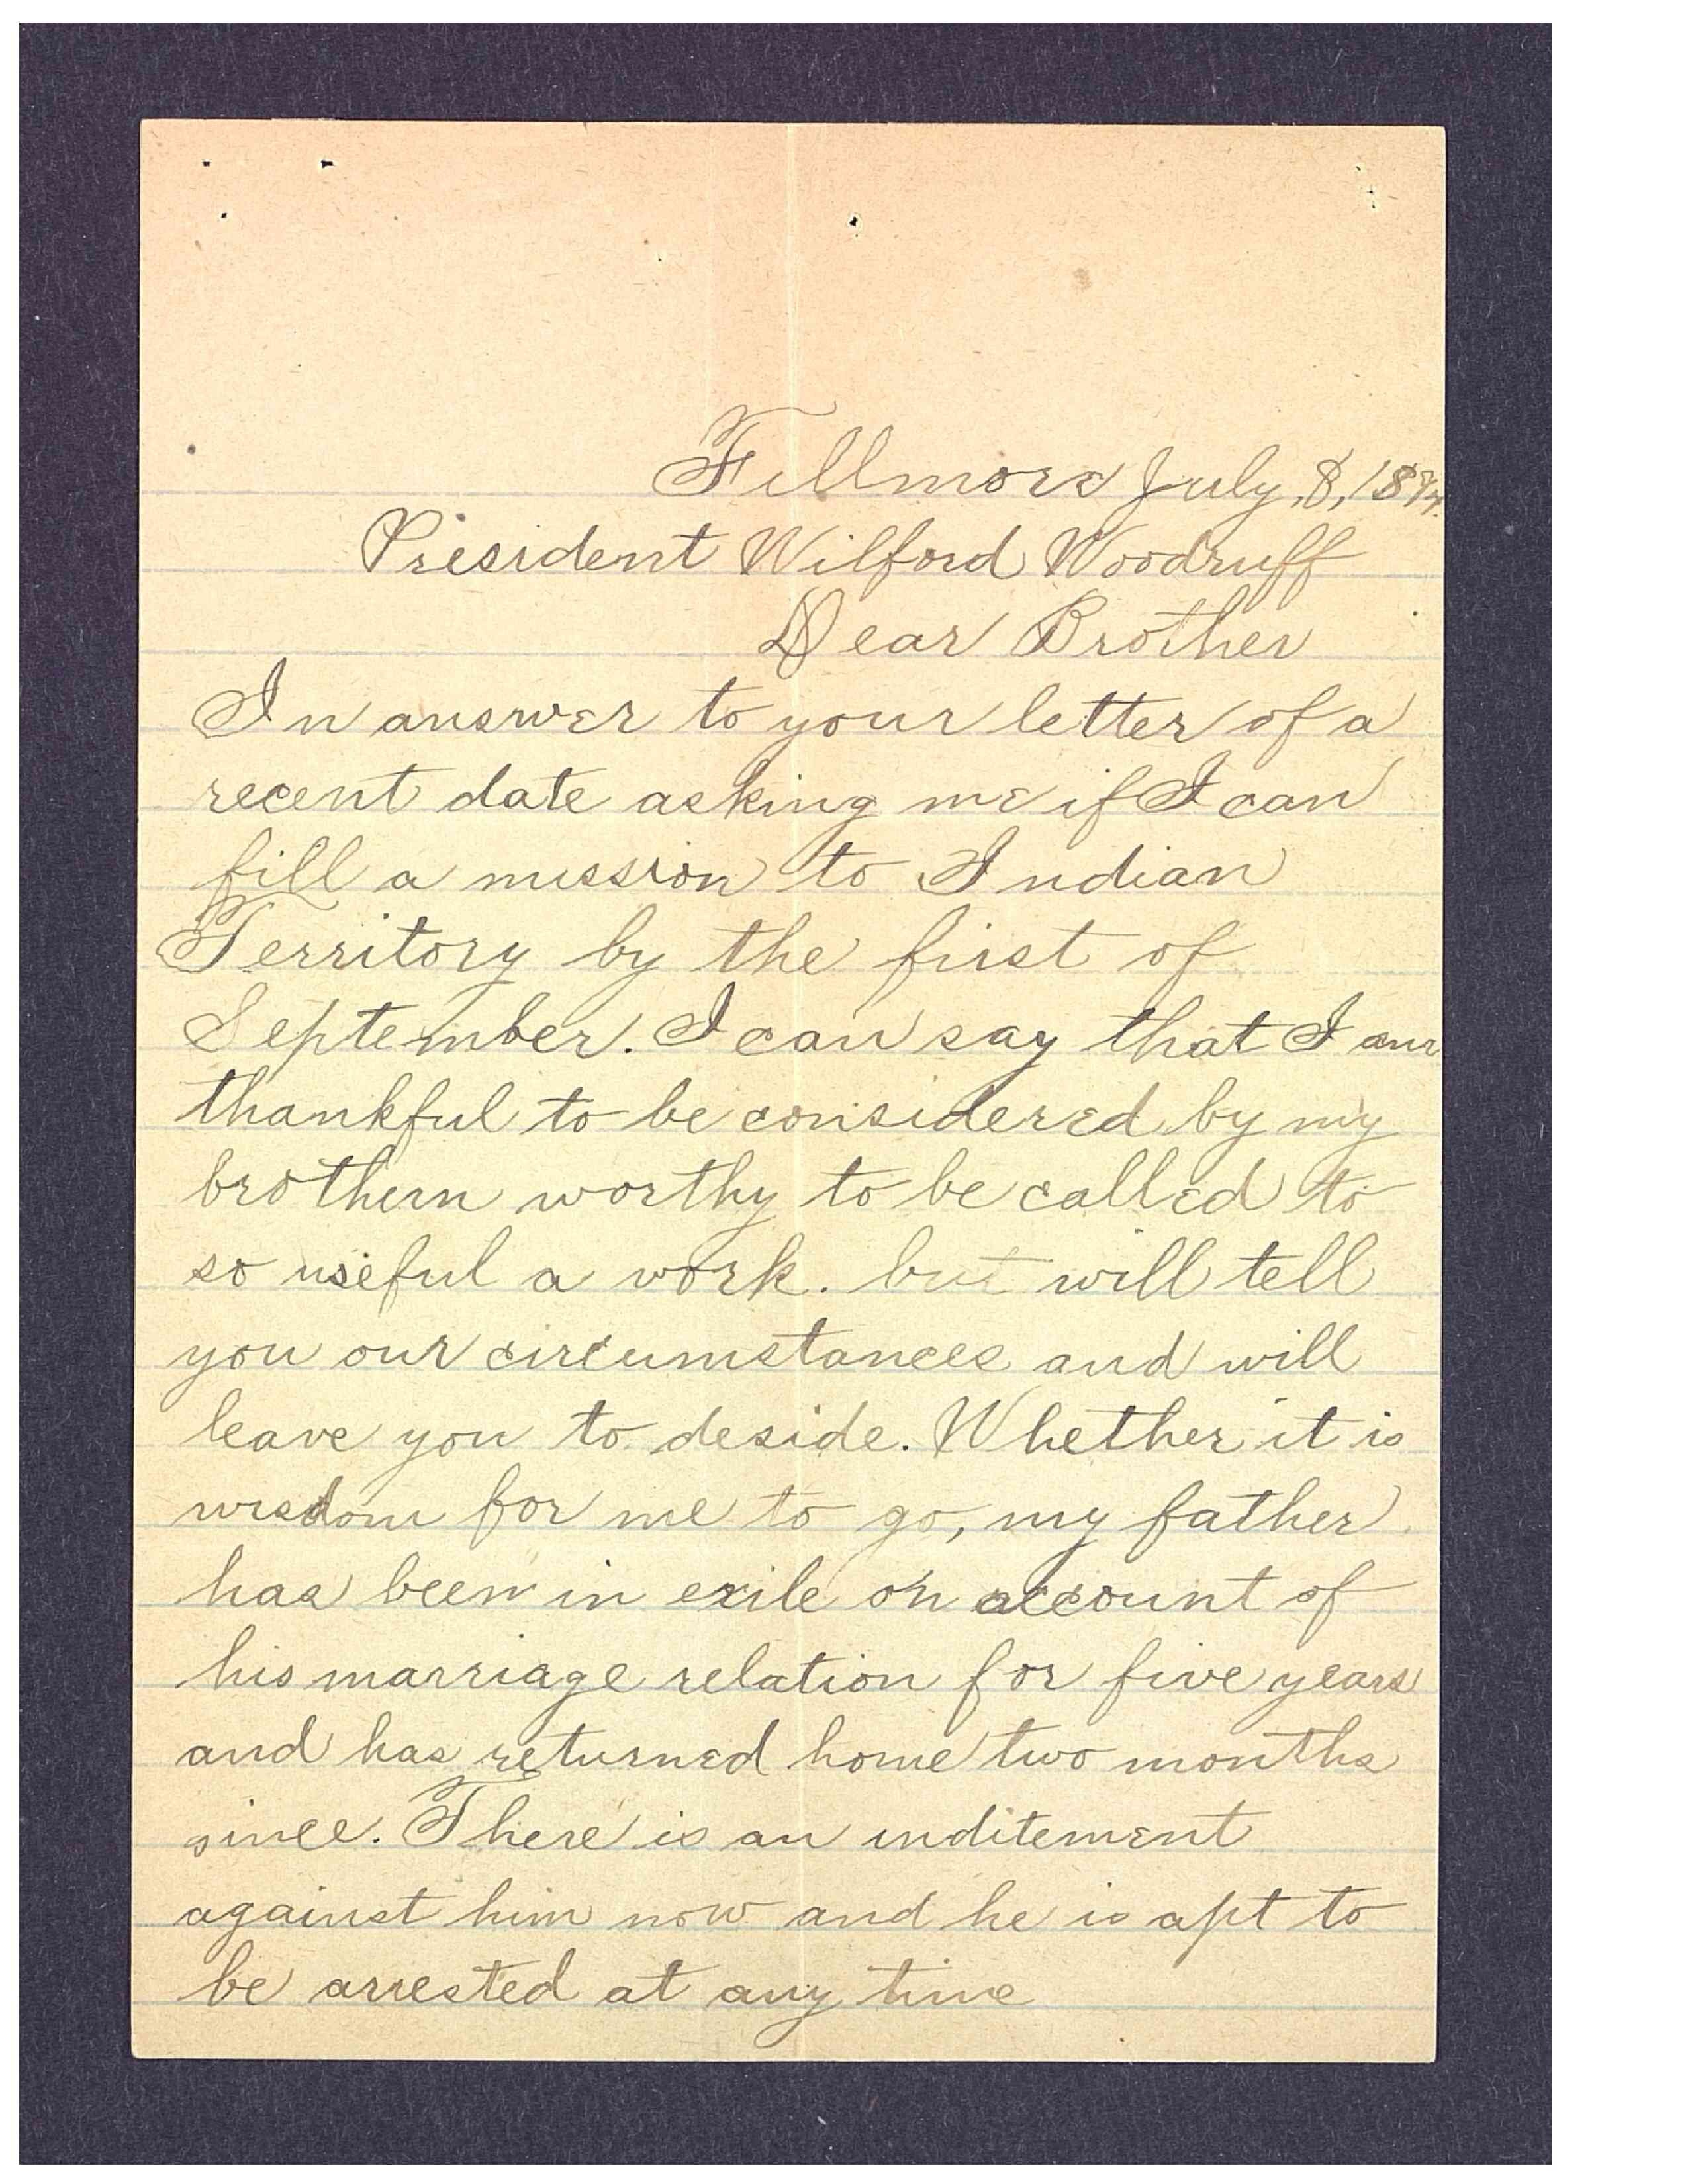 Fillmore July, 8, 1894.
President Wilford Woodruff
Dear Brother
In answer to your letter of a
recent date asking me if I can
fill a mission to Indian
Territory by the first of
September. I can say that I am
thankful to be considered by my
brothern worthy to be called to
so useful a work. but will tell
you our circumstances and will
leave you to deside. Whether it is
wisdom for me to go, my father
has been in exile on account of
his marriage relation for five years
and has returned home two months
since. There is an inditement
against him now and he is apt to
be arrested at any time